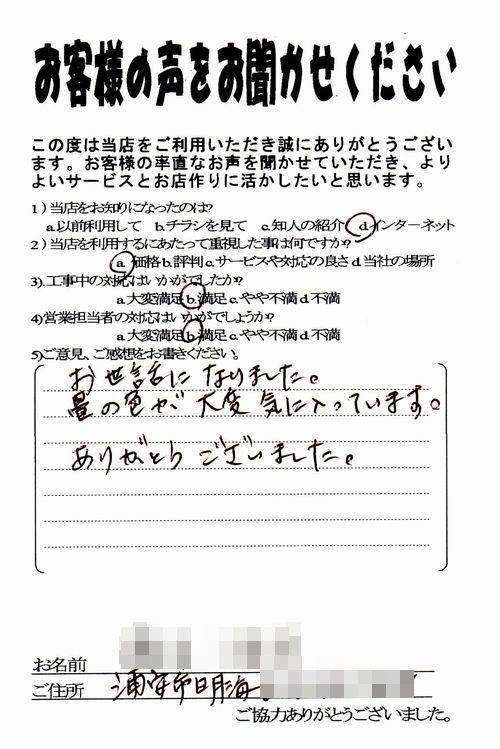 お客様の声をお聞かせください
この度は当店をご利用いただき誠にありがとうござい
ます。お客様の率直なお声を聞かせていただき、より
よいサービスとお店作りに活かしたいと思います。
1）当店をお知りになったのは?
a.以前利用して b.チラシを見て c.知人の紹介 d.インターネット
2）当店を利用するにあたって重視した事は何ですか?
a.価格 b.評判 c.サービスや対応の良さ d.当社の場所
3).工事中の対応はいかがでしたか?
a.大変満足 b.満足 c.やや不満 d.不満
4)営業担当者の対応はいかがでしょうか?
a.大変満足 b.満足 c.やや不満 d.不満
5)ご意見、ご感想をお書きください。
お世話になりました。
畳の色が大変気に入っています。
ありがとうございました。
お名前
ご住所 浦安市明海
ご協力ありがとうございました。